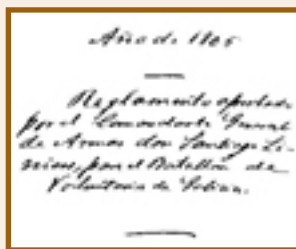 Año de 1805
Reglamento aprobado
por el Comandante General
de Armas don Santiago Li-
niers, para el Batallón de
Voluntarios de